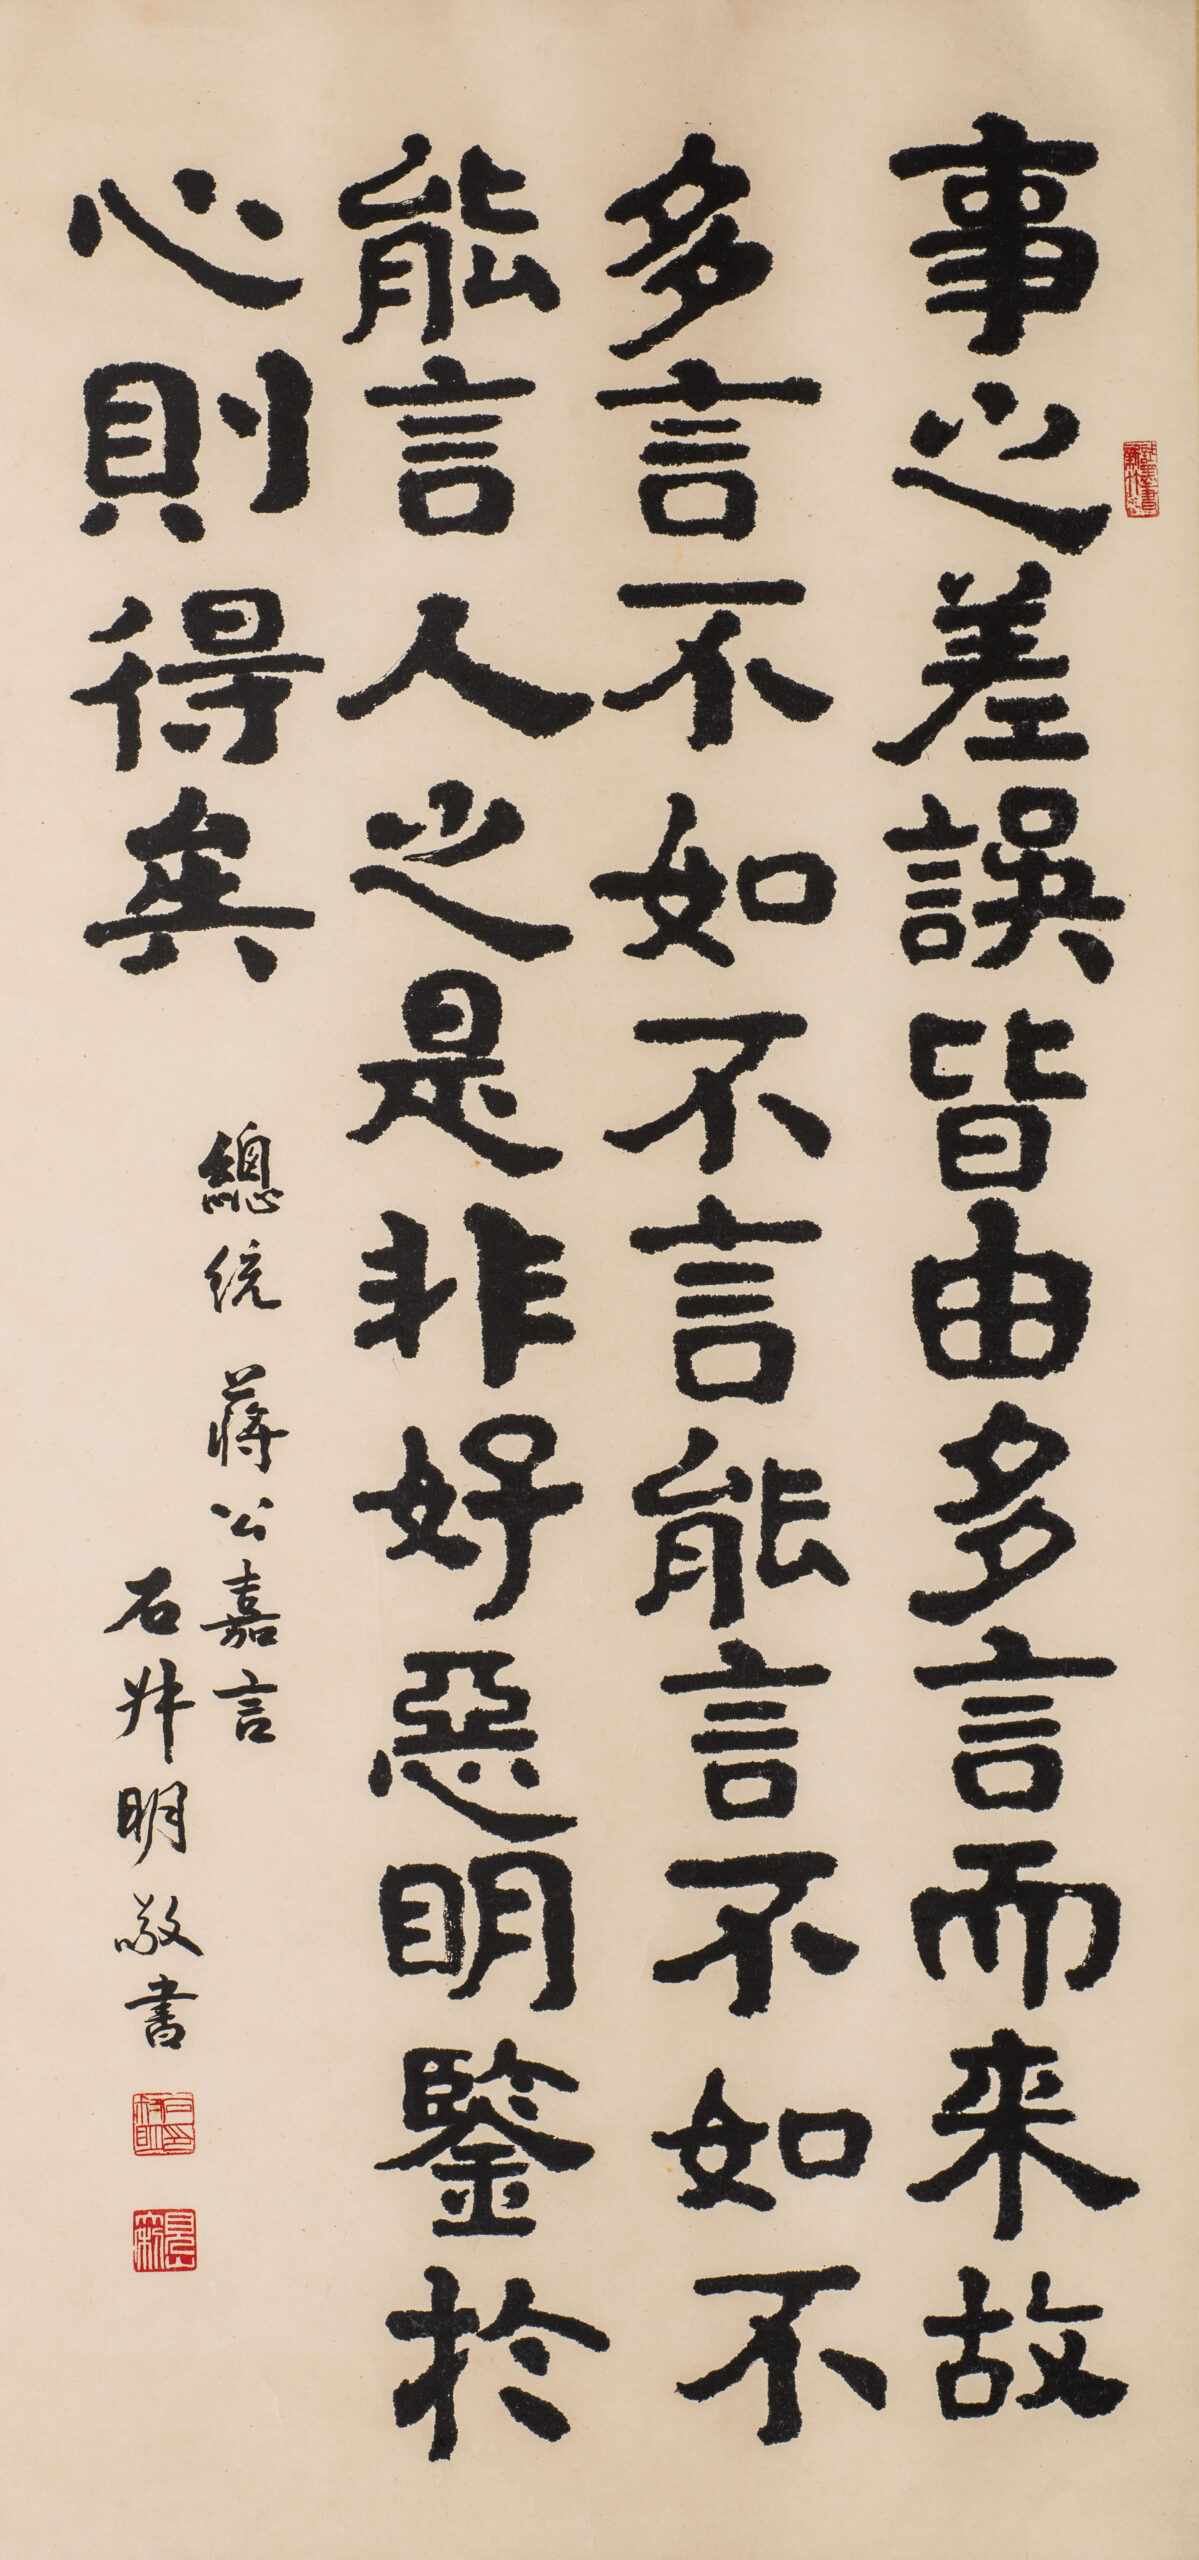 事之差誤皆由多言而来故
多言不如不言能言不如不
能言人之是非好惡明鑒於
心則得矣
總統 蔣公嘉言
石叔明敬書